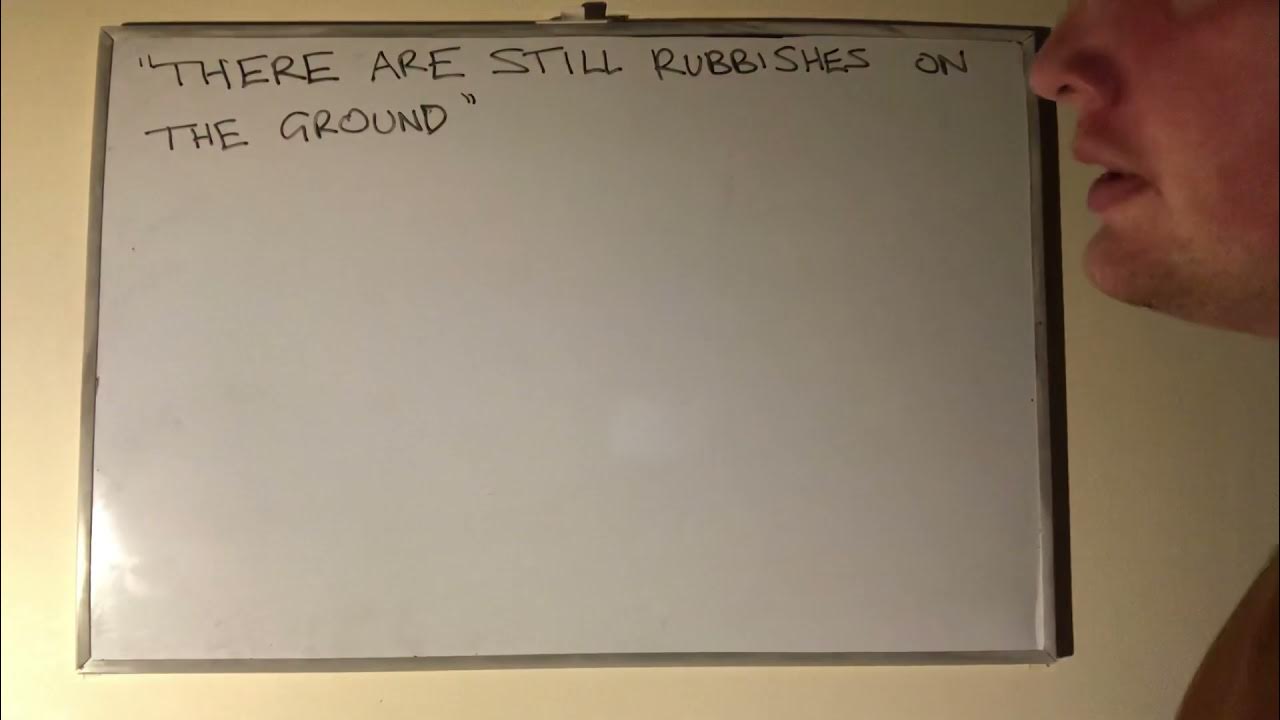 "THERE ARE STILL RUBBISHES ON
THE GROUND"